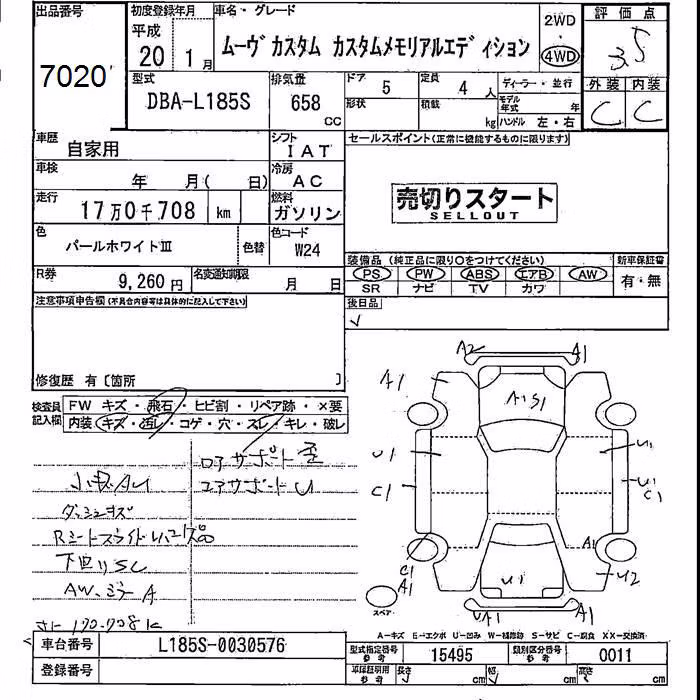 出品番号
7020
初度登録年月
平成
20 1月
車名・グレード
ムーヴ カスタム カスタムメモリアルエディション
2WD
・
4WD
評価点
3.5
外装 内装
C C
型式
DBA-L185S
排気量
658
CC
ドア
5
定員
4 人
形状
積載
kg
ディーラー・並行
モデル年式 年
ハンドル 左・右
車歴
自家用
シフト
IAT
車検
年 月( 日)
冷房
AC
走行
17万0千708 km
燃料
ガソリン
色
パールホワイトⅢ
色替
色コード
W24
R券
9,260円
名変通知期限
月 日
セールスポイント(正常に機能するものに限ります)
売切りスタート
SELLOUT
装備品 (純正品に限り○をつけてください)
新車保証書
PS PW ABS エアB AW
SR ナビ TV カワ
有・無
後日品
注意事項申告欄(不具合内容等は具体的に記入して下さい)
修復歴 有〔箇所 〕
検査員
記入欄
FW キズ・飛石・ヒビ割・リペア跡・×要
内装 キズ・汚レ・コゲ・穴・スレ・キレ・破レ
コアサポート歪
コアサポートU
小凹AU
ダッシュキズ
下回りSC
AW、ミラーA
A2
A1
A1
A1S1
U1
C1
U1
U1
C1
C1
A1
A1
U1
U2
UA1
A1
スペア
A-キズ E-エクボ U-凹み W-補修跡 S-サビ C-腐食 XX-交換済
車台番号
L185S-0030576
登録番号
型式指定番号
参考
15495
類別区分番号
参考
0011
車庫証明用
参考
長さ cm
幅 cm
高さ cm